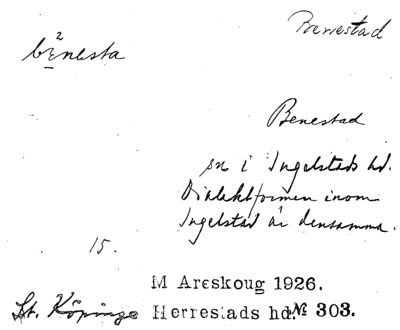 Benestad
bènesta
Benestad
sn i Ingelstads hd.
Dialektformen inom
Ingelstad är densamma.
15.
M Areskoug 1926.
St. Köpinge Herrestads hd. № 303.